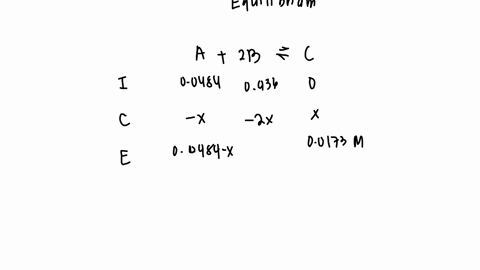 Equilibrium
A + 2B ⇌ C
I 0.0484 0.936 0
C -x -2x x
E 0.0484-x 0.0173 M